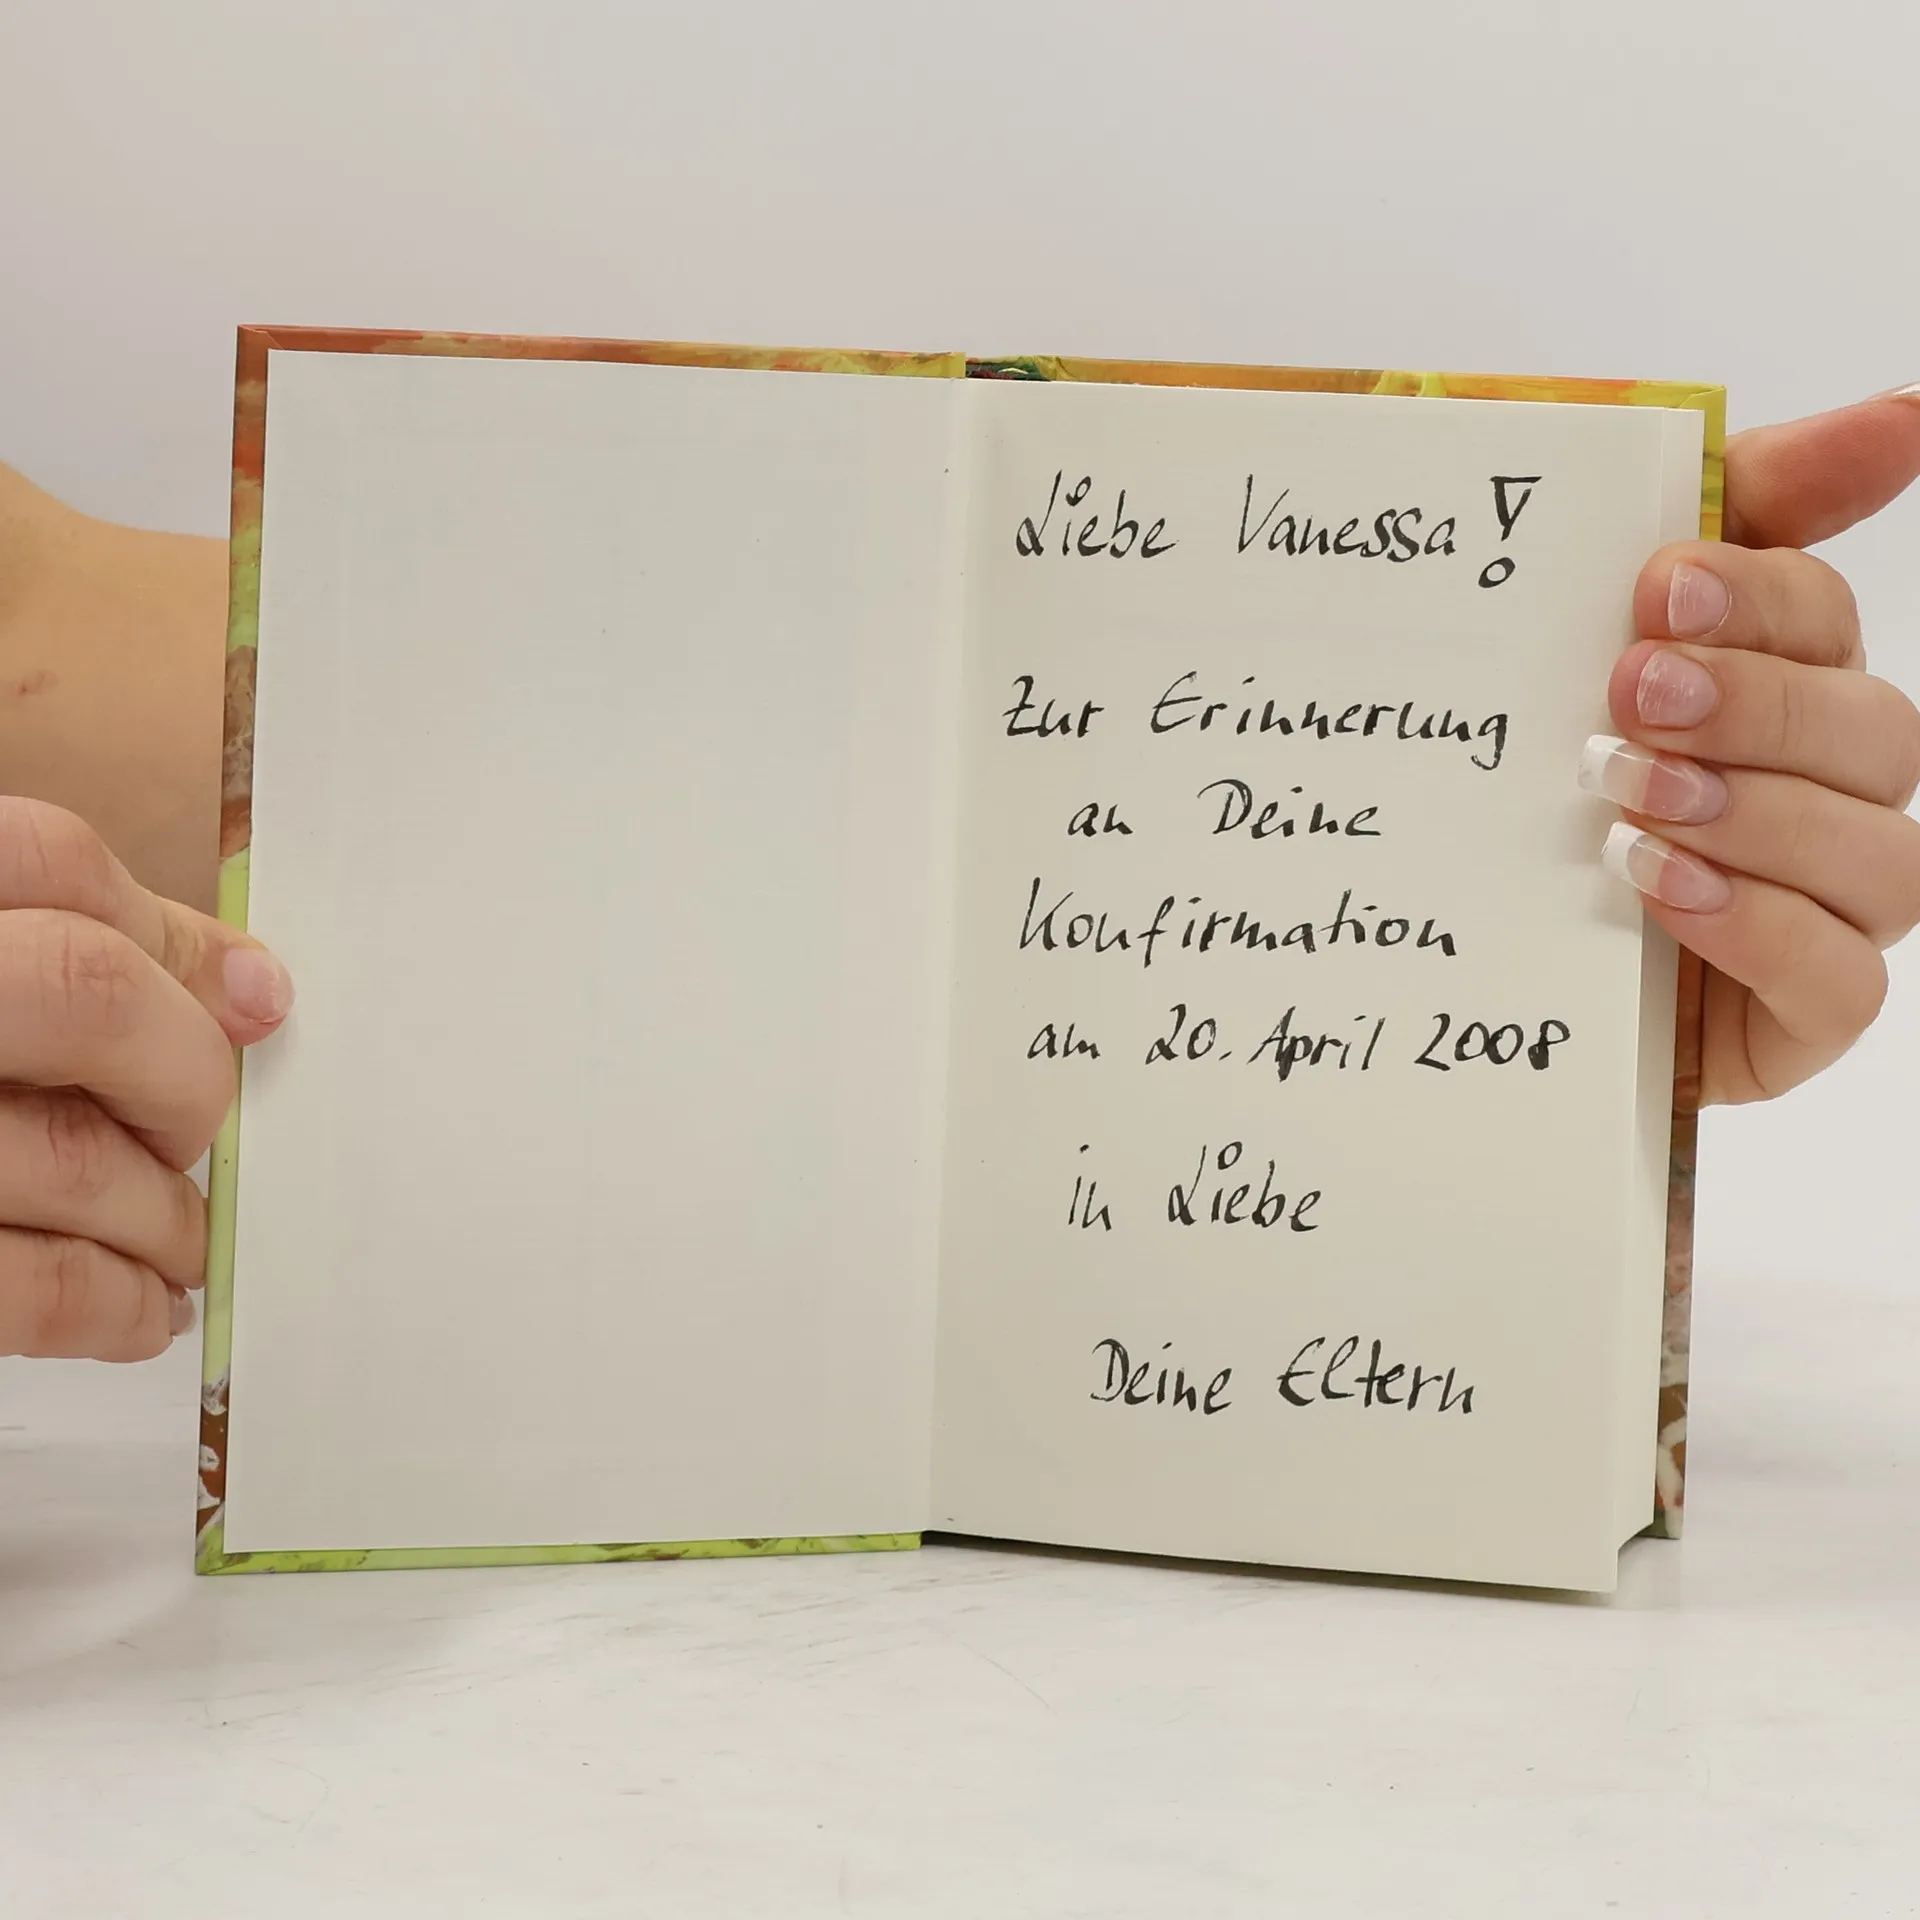 Liebe Vanessa!
Zur Erinnerung
an Deine
Konfirmation
am 20. April 2008
in Liebe
Deine Eltern